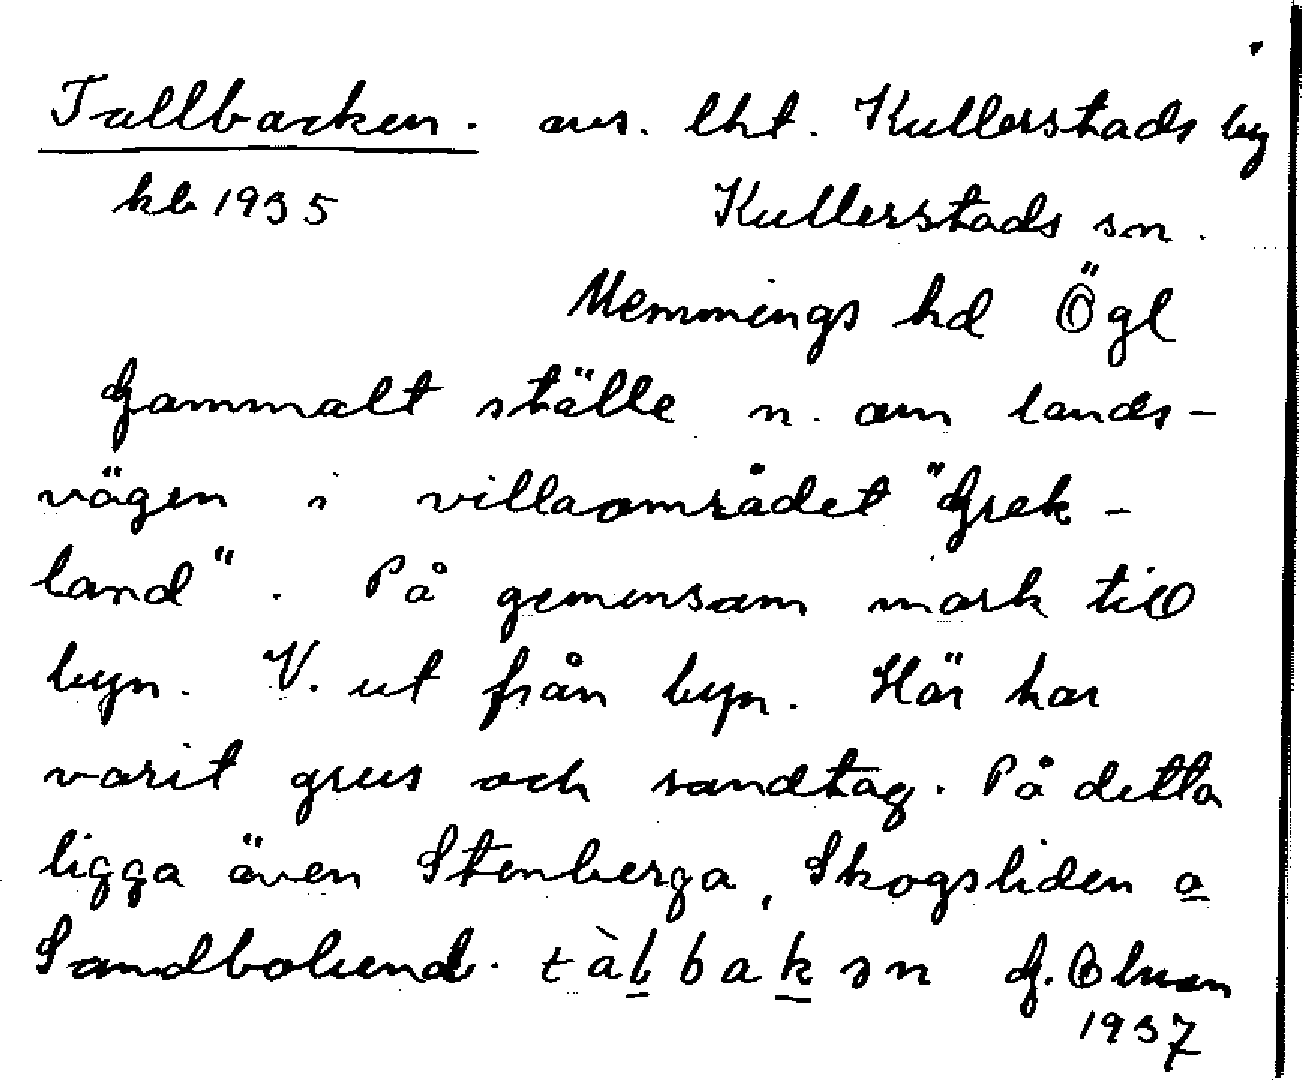 Tallbacken. avs. lht. Kullerstads by
kb 1935 Kullerstads sn.
Memmings hd Ögl
Gammalt ställe n. om lands-
vägen i villaområdet "Grek-
land". På gemensam mark till
byn. V. ut från byn. Här har
varit grus och sandtag. På detta
ligga även Stenberga, Skogsliden o
Sandbolund. tàl̲bak̲ən G. Olsson
1937